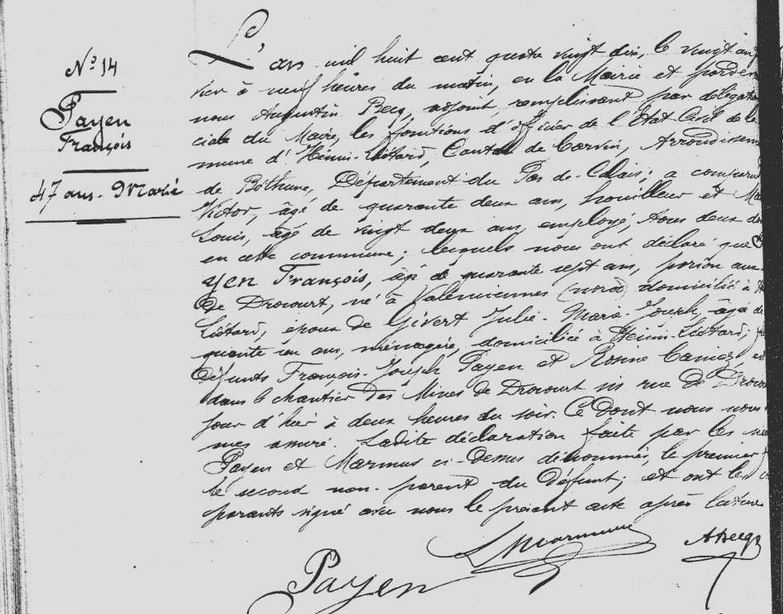 Nº 14
Payen
François
47 ans - Marié
L'an mil huit cent quatre vingt dix, le vingt
vier à neuf heures du matin, en la Mairie et pardev
nous Augustin Becq, adjoint, remplissant par délégation
ciale du Maire, les fonctions d'officier de l'Etat Civil de la
mune d'Hénin-Liétard, Canton de Carvin, Arrondissem
de Béthune, Département du Pas-de-Calais; a comparu
Victor, âgé de quarante deux ans, houilleur et Ma
Louis, âgé de vingt deux ans, employé, tous deux do
en cette commune; lesquels nous ont déclaré que
yen François, âgé de quarante sept ans, porion aux
de Drocourt, né à Valenciennes (nord) domicilié à H
Liétard, époux de Givert Julie-Marie-Joseph, âgée de
quante un ans, ménagère, domiciliée à Hénin-Liétard,
défunts François-Joseph Payen et
dans le chantier des Mines de Drocourt sis rue de Drocou
jour d'hier à deux heures du soir. Ce dont nous nous
mes assuré. Ladite déclaration faite par les
Payen et Marmus ci-dessus dénommés, le premier
le second non-parent du défunt; et ont les
parants signé avec nous le présent acte après lecture
Payen
LMarmus
ABecq